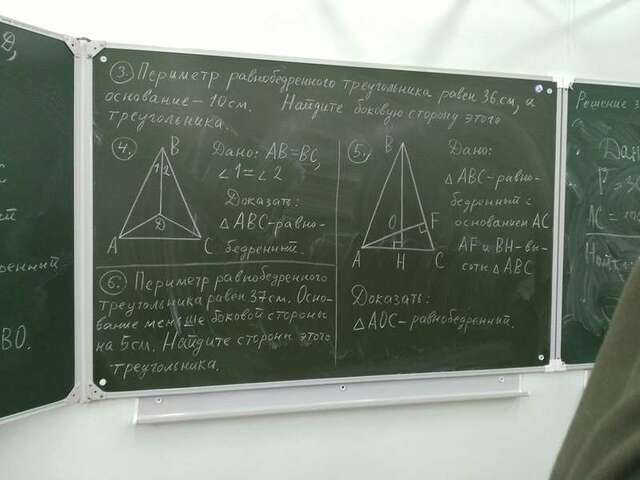 Д,
ий
денный
ВО.
3. Периметр равнобедренного треугольника равен 36 см, а
основание – 10 см. Найдите боковую сторону этого
треугольника.
4.
B
1 2
Д
A
C
Дано: AB=BC,
∠1=∠2
Доказать:
△ABC–равно-
бедренный.
5.
B
O
F
A
H
C
Дано:
△ABC–равно-
бедренный с
основанием AC
AF и BH–вы-
соты △ABC
Доказать:
△AOC–равнобедренный.
6. Периметр равнобедренного
треугольника равен 37 см. Осно-
вание меньше боковой стороны
на 5 см. Найдите стороны этого
треугольника.
Решение
Дан
P
AC =
Найт